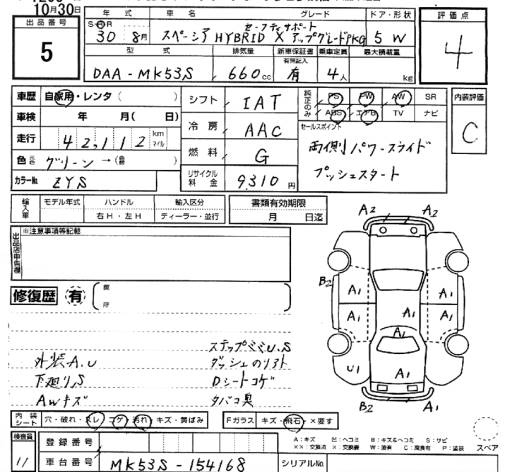 10月30日
出品番号
5
年式 車名 グレード ドア・形状
S・R 30 8月 スペーシア HYBRID X セーフティサポート アップグレードPKG 5 W
評価点
4
型式 排気量 新車保証書 乗車定員 最大積載量
有無記入
DAA-MK53S 660cc 有 4人 kg
車歴 自家用・レンタ( )
車検 年 月(日)
走行 42,112 km マイル
色 元色 グリーン→(色替 )
カラーNo. ZYS
シフト IAT
冷房 AAC
燃料 G
リサイクル料金 9310円
純正のみ PS PW AW SR
ABS エアB TV ナビ
内装評価
C
セールスポイント
両側パワースライド
プッシュスタート
輸入車 モデル年式 ハンドル 輸入区分 書類有効期限
右H・左H ディーラー・並行 月 日迄
出品店申告欄 ※注意事項等記載
修復歴 有 箇所
外装A.U
下廻りS
AWキズ
ステップミミU.S
ダッシュのリフト
Dシートコゲ
タバコ臭
A2 A2
A1 A1
B2 A1 A1 A1 A1
A1
U1 A1
B2 A2
内装シート 穴・破れ・スレ コゲ 汚れ・キズ・黄ばみ
Fガラス キズ・飛石・×要す
検査員
11
登録番号
車台番号 MK53S-154168
A:キズ E:ヘコミ B:キズ&ヘコミ S:サビ
XX:交換済 X:交換要 W:波有 C:腐食有 P:塗装
スペア
シリアルNo.